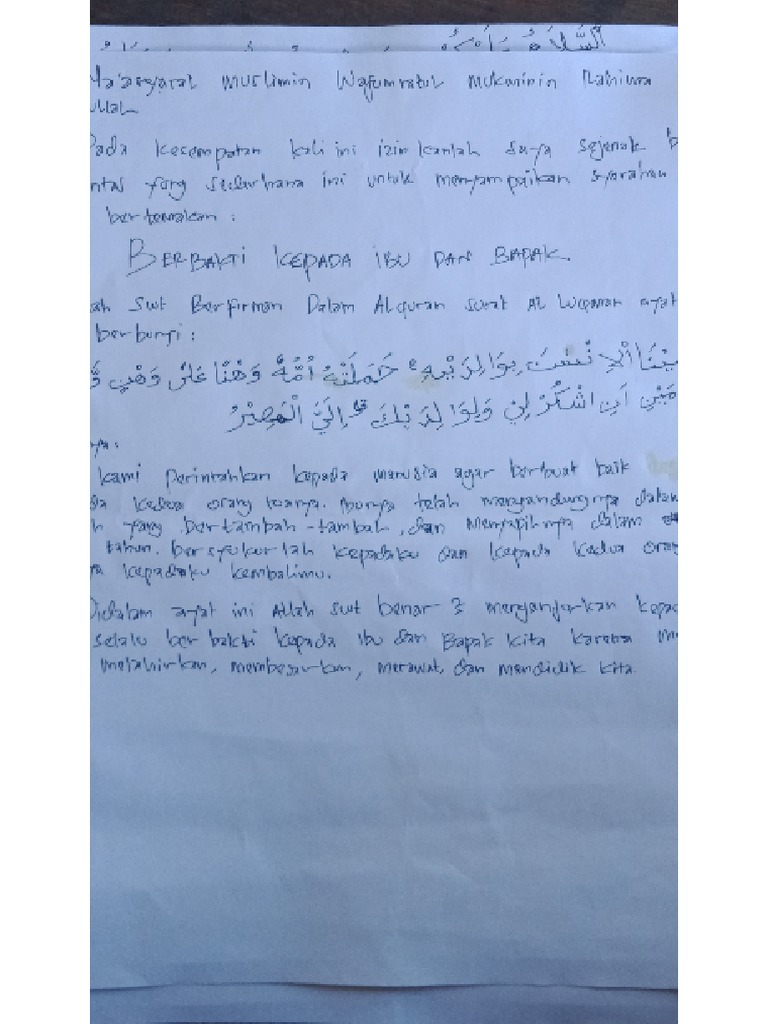 السَّلَامُ
Ma'asyaral muslimin Wazumratul mukminin Rahima
ullah
Pada kesempatan kali ini izinkanlah saya sejenak b
ntas yang sederhana ini untuk menyampaikan syarahan
bertemakan :
BERBAKTI KEPADA IBU DAN BAPAK.
ah swt Berfirman Dalam Alquran surat Al Luqman ayat
berbunyi :
يْنَا الْاِ نْسَانَ بِوَالِدَيْهِۚ حَمَلَتْهُ اُمُّهٗ وَهْنًا عَلٰى وَهْنٍ وَّ
مَيْنِ اَنِ اشْكُرْ لِيْ وَلِوَالِدَيْكَۗ اِلَيَّ الْمَصِيْرُ
ya:
kami perintahkan kepada manusia agar berbuat baik
da kedua orang tuanya. Ibunya telah mengandungnya dalam
h yang bertambah-tambah, dan Menyapihnya dalam
tahun. bersyukurlah kepadaku dan kepada kedua oran
a kepadaku kembalimu.
Didalam ayat ini Allah swt benar 2 menganjurkan kepad
selalu berbakti kepada ibu dan Bapak kita karena me
melahirkan, membesarkan, merawat, dan mendidik kita